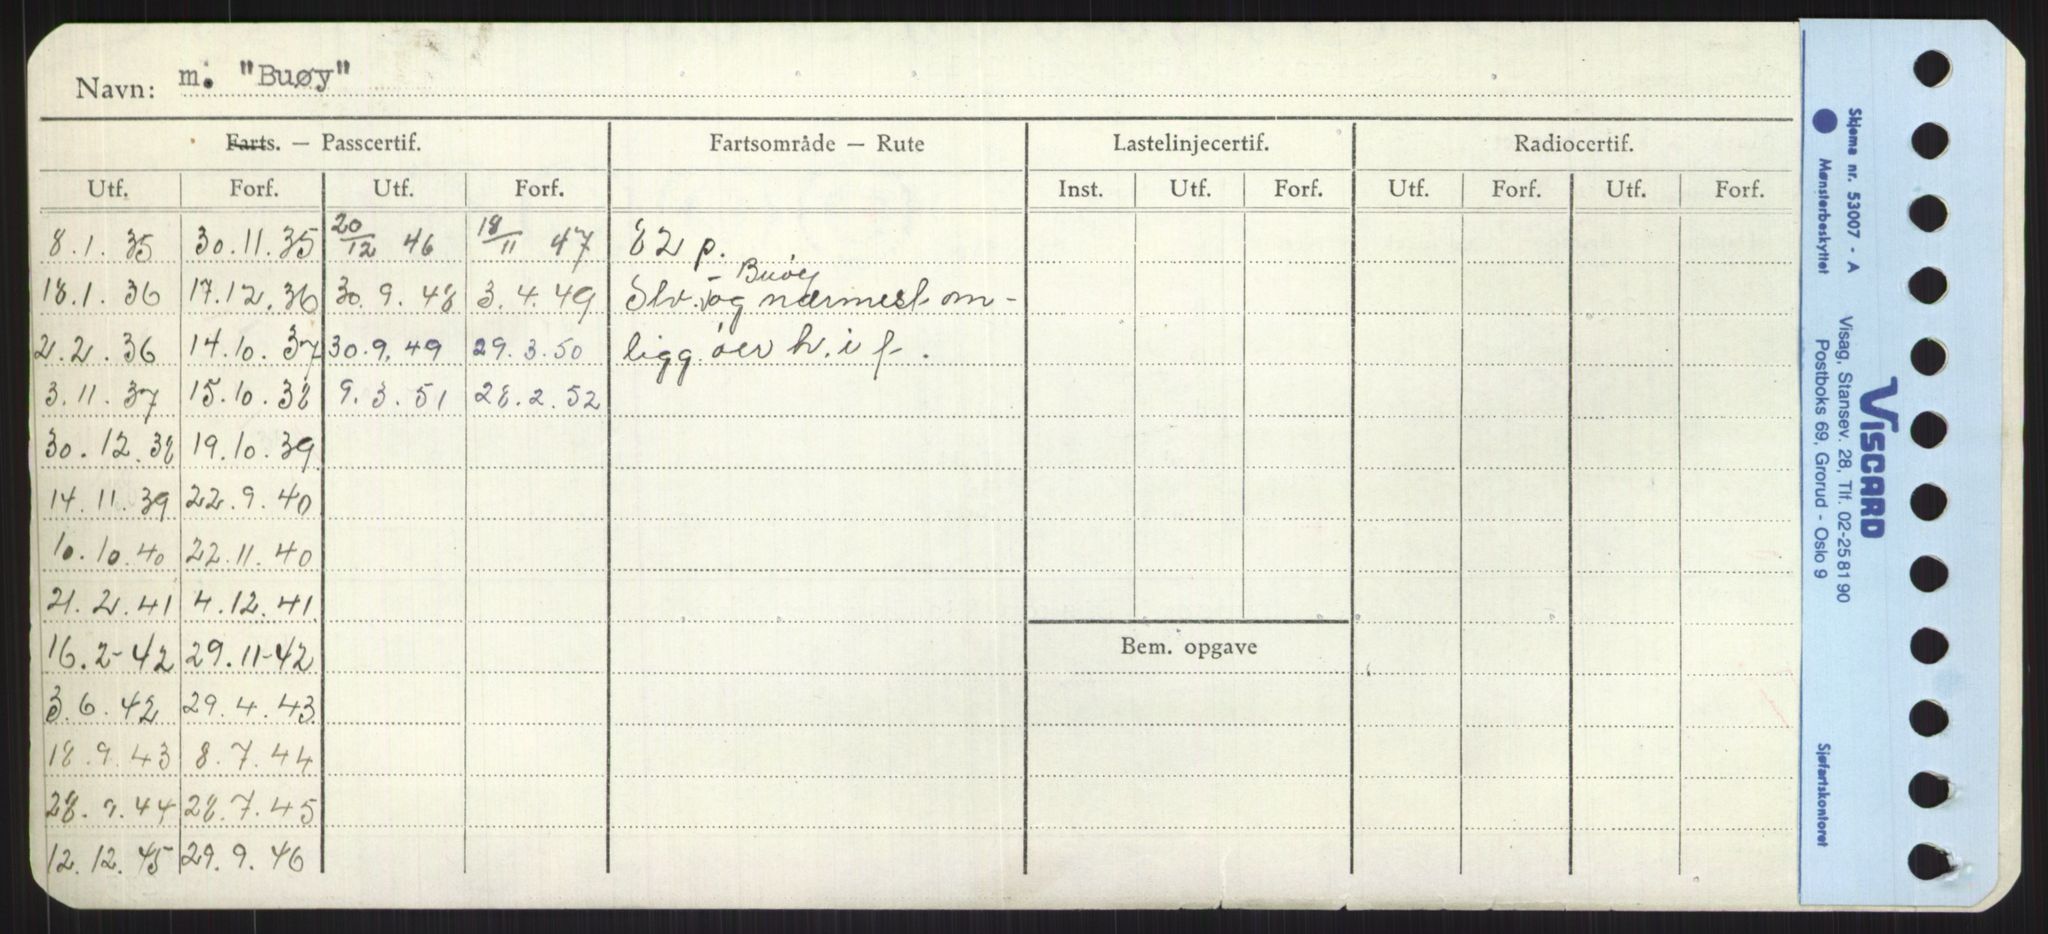 Navn: m. "Buøy"
Farts. — Passcertif. Fartsområde — Rute Lastelinjecertif. Radiocertif.
Utf. Forf. Utf. Forf. Inst. Utf. Forf. Utf. Forf. Utf. Forf.
8.1.35 30.11.35 20/12 46 18/11 47 82 p.
Buøy
18.1.36 17.12.36 30.9.48 3.4.49 Stv. - og nærmest om-
2.2.36 14.10.37 30.9.49 29.3.50 ligg. öer h.i f.
3.11.37 15.10.38 9.3.51 28.2.52
30.12.38 19.10.39
14.11.39 22.9.40
10.10.40 22.11.40
21.2.41 4.12.41
16.2-42 29.11-42
Bem. opgave
3.6.42 29.4.43
18.9.43 8.7.44
28. .44 28.7.45
12.12.45 29.9.46
Skjema nr. 53007 - A
Mønsterbeskyttet
Visag, Stansev. 28, Tlf. 02-25 81 90
Postboks 69, Grorud - Oslo 9
VISCARD
Sjøfartskontoret